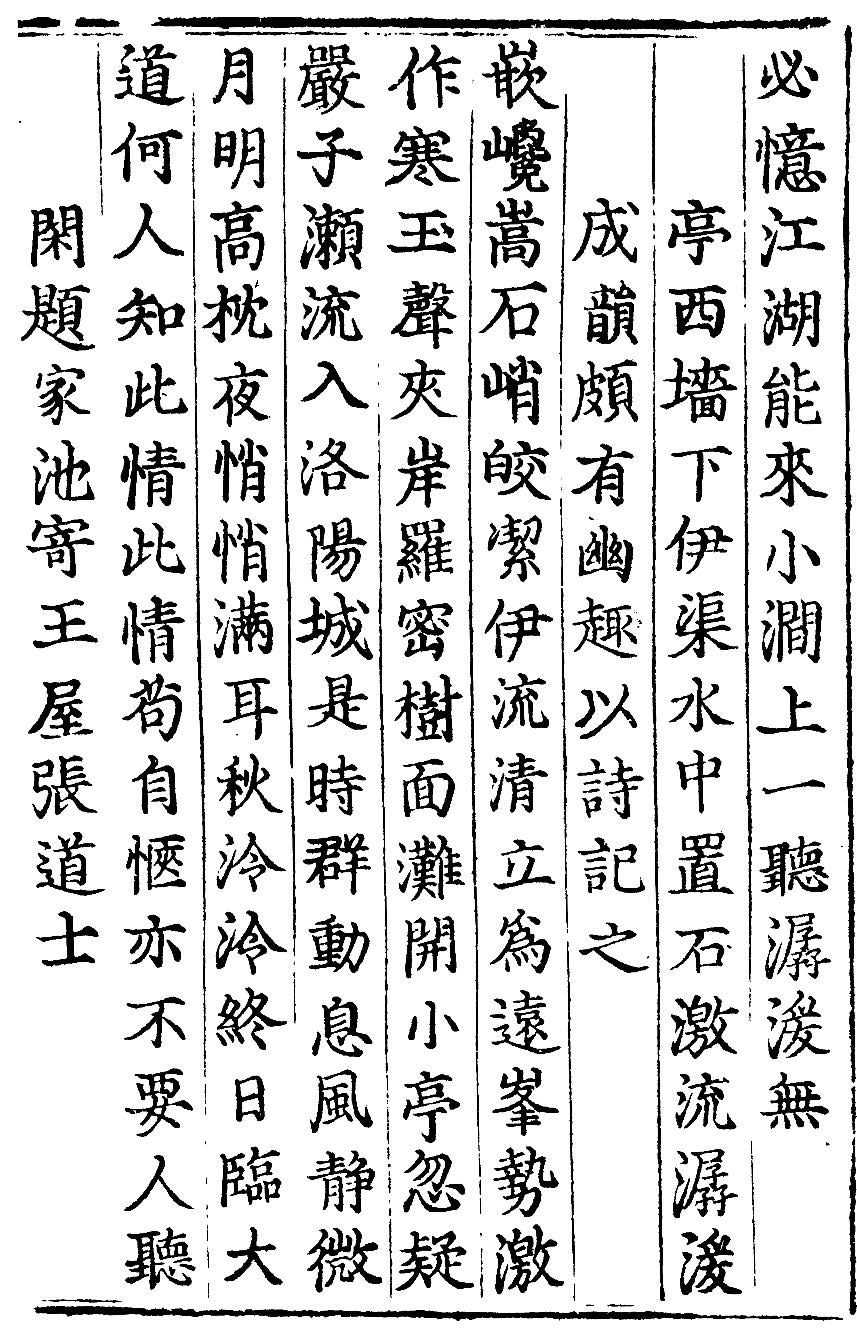 必憶江湖能來小澗上一聽潺湲無
亭西墻下伊渠水中置石激流潺湲
成韻頗有幽趣以詩記之
嵌巉嵩石峭皎潔伊流清立爲遠峯勢激
作寒玉聲夾岸羅密樹面灘開小亭忽疑
嚴子瀨流入洛陽城是時群動息風静微
月明高枕夜悄悄滿耳秋泠泠終日臨大
道何人知此情此情苟自愜亦不要人聽
閑題家池寄王屋張道士